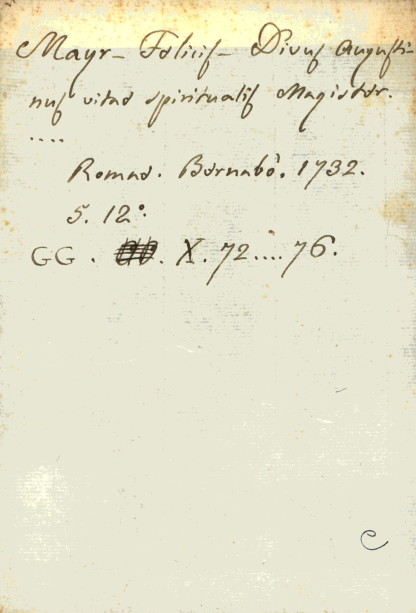 Mayr- Felicis- Divus Augusti-
nus vitae spiritualis Magister.
....
Romae. Bernabò. 1732.
5. 12°.
GG. X. 72....76.
C